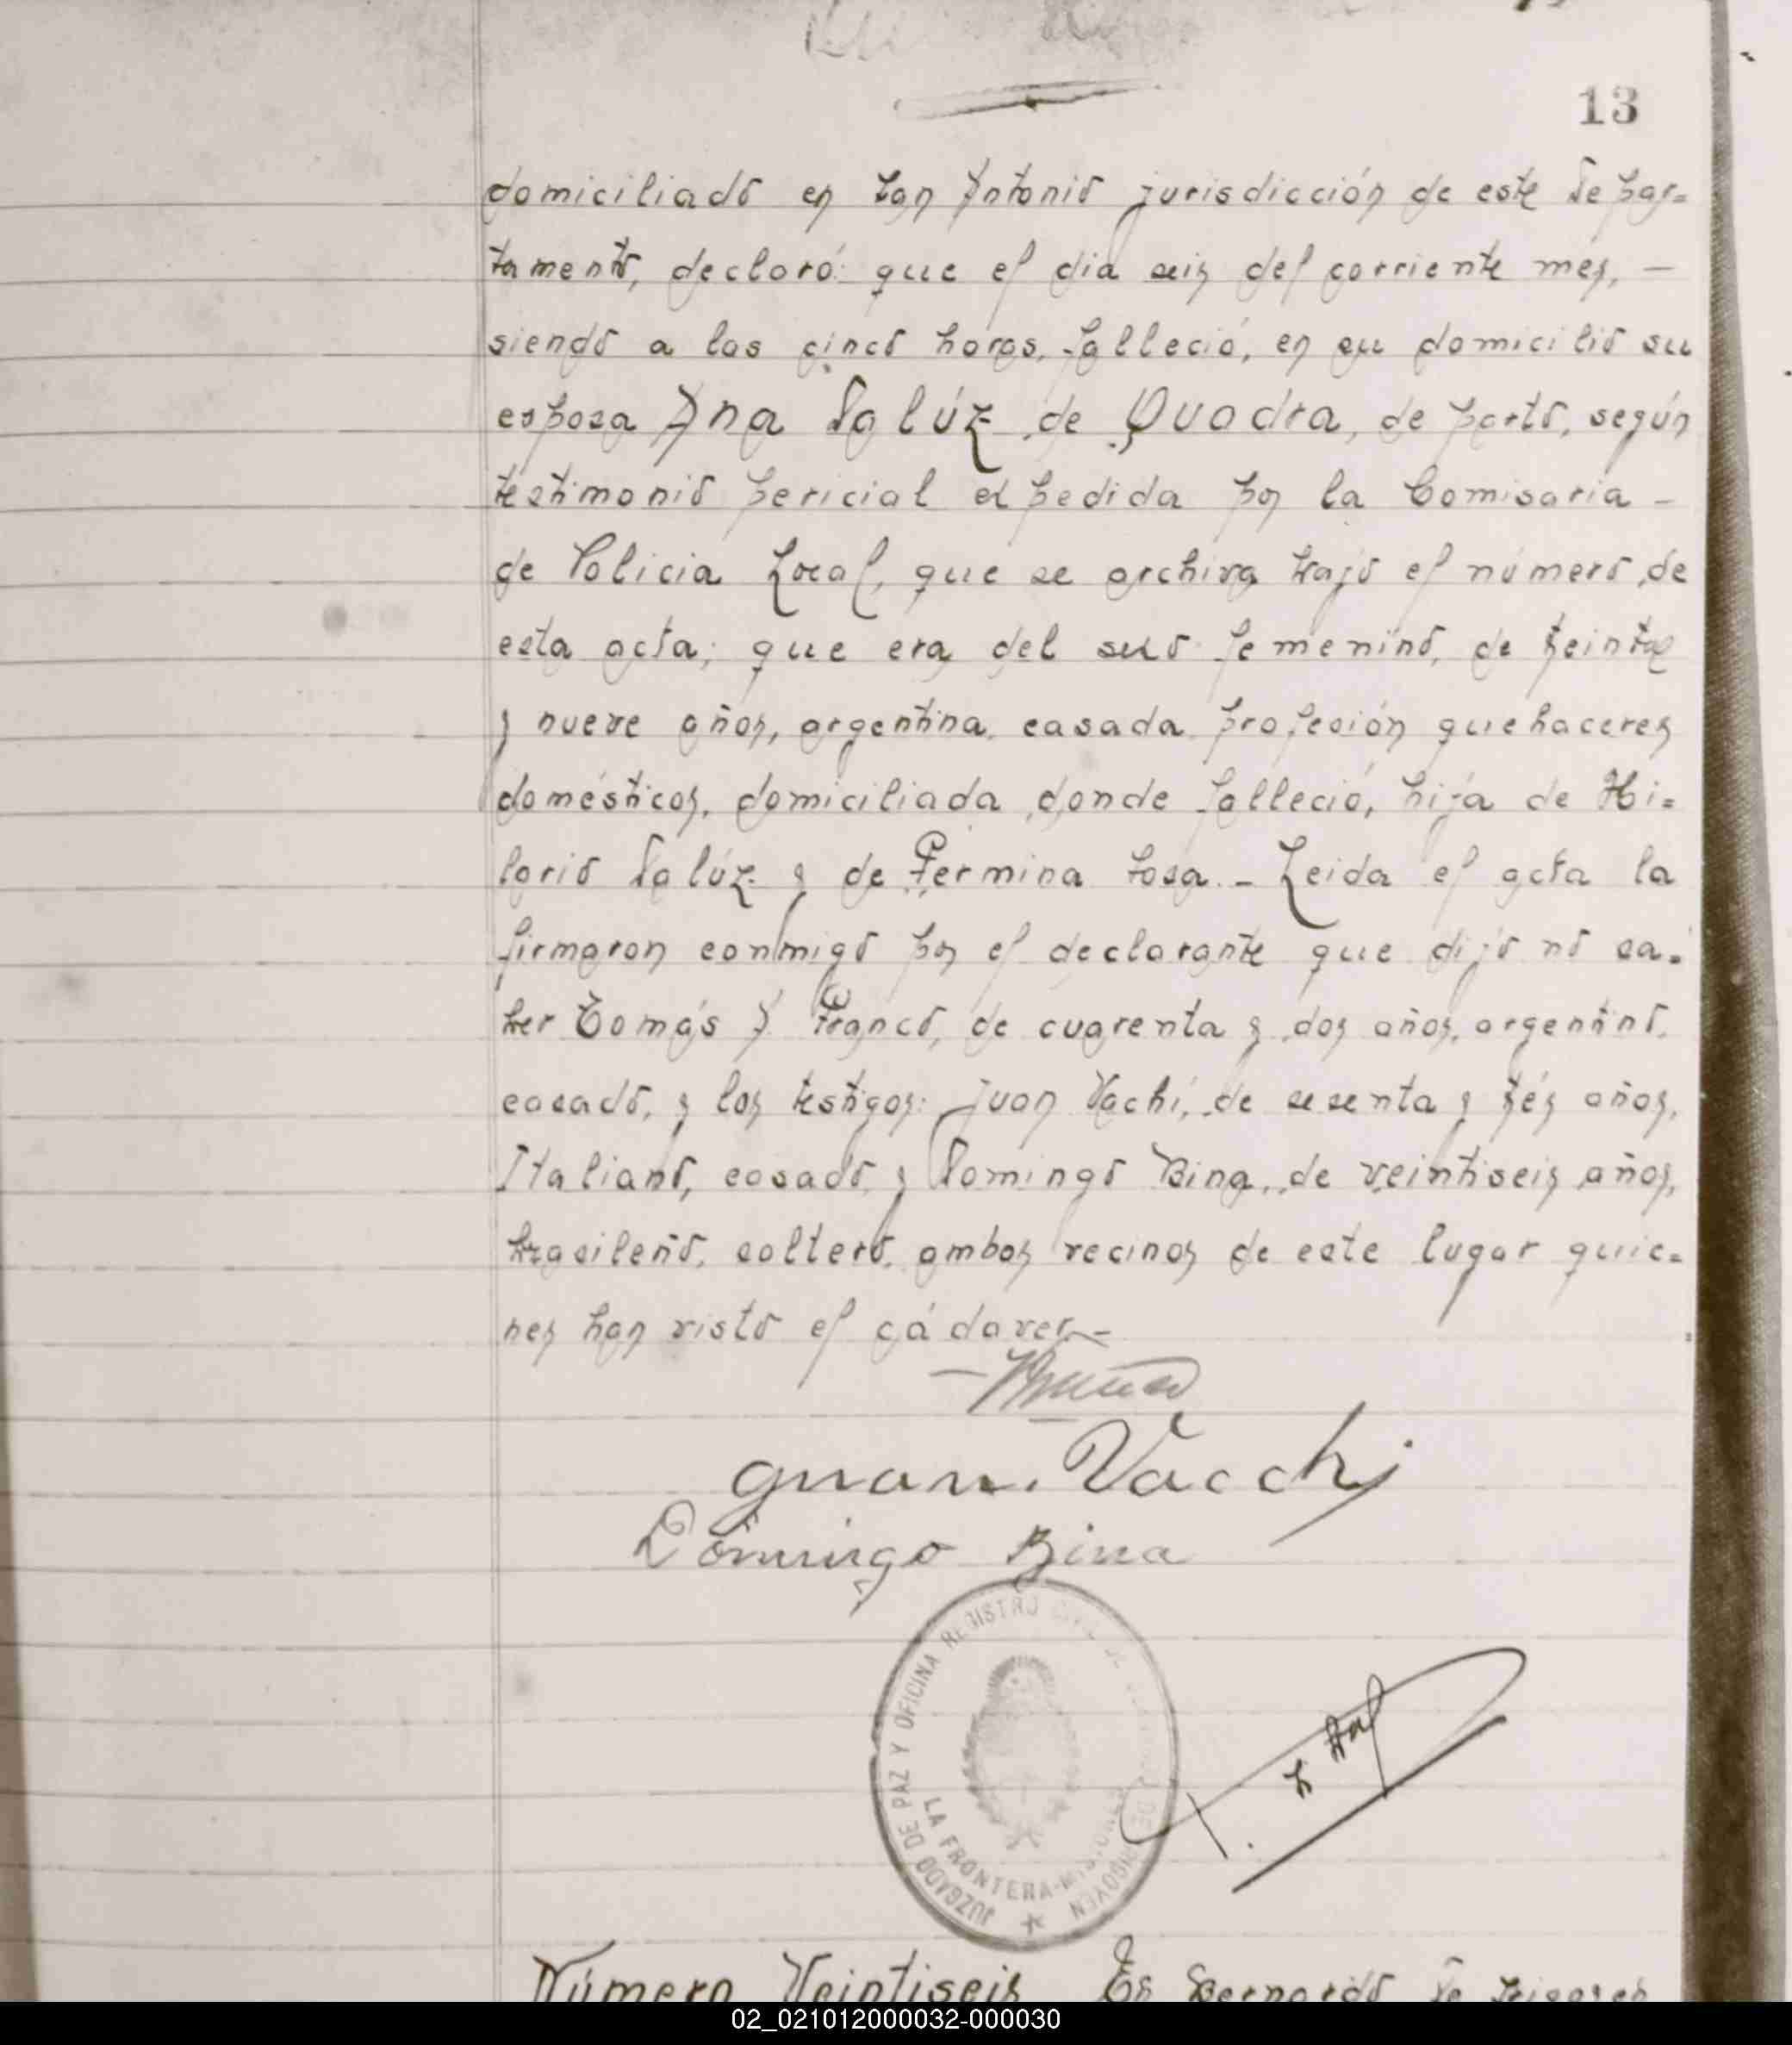 13
domiciliado en San Antonio jurisdicción de este Depar=
tamento, declaró: que el dia seis del corriente més, —
siendo a las cinco horas, falleció, en su domicilio su
esposa Ana Dalúz de Quadra, de parto, según
testimonio pericial expedida por la Comisaria —
de Policia Local, que se archiva bajo el número de
esta acta; que era del sexo femenino, de treinta
y nueve años, argentina, casada, profesión quehaceres
domésticos, domiciliada donde falleció, hija de Hi=
lario Dalúz y de Fermina Sosa. — Leida el acta la
firmaron conmigo por el declarante que dijo no sa=
ber Tomás A Franco, de cuarenta y dos años, argentino,
casado, y los testigos: Juan Vachi, de sesenta y trés años,
Italiano, casado, y Domingo Bina, de veintiseis años,
brasileño, soltero, ambos vecinos de este lugar quie=
nes han visto el cádaver. —
Juan Vacchi
Domingo Bina
JUZGADO DE PAZ Y OFICINA REGISTRO CIVIL DE IRIGOYEN
LA FRONTERA-MISIONES
Número Veintiseis En Bernardo de Irigoyen
02_021012000032-000030